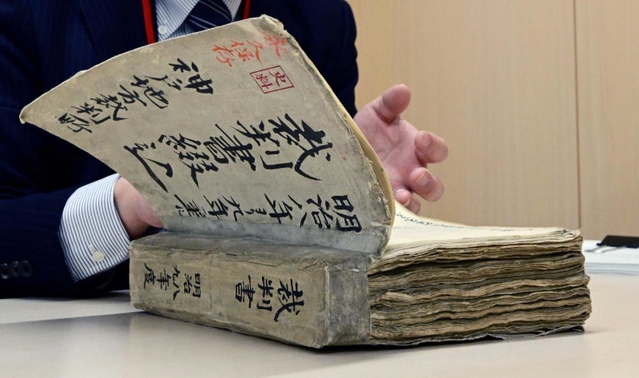 永久保存
史料
明治八年 九年
裁判書綴込
神戸地方裁判所
裁判書
明治八九年度